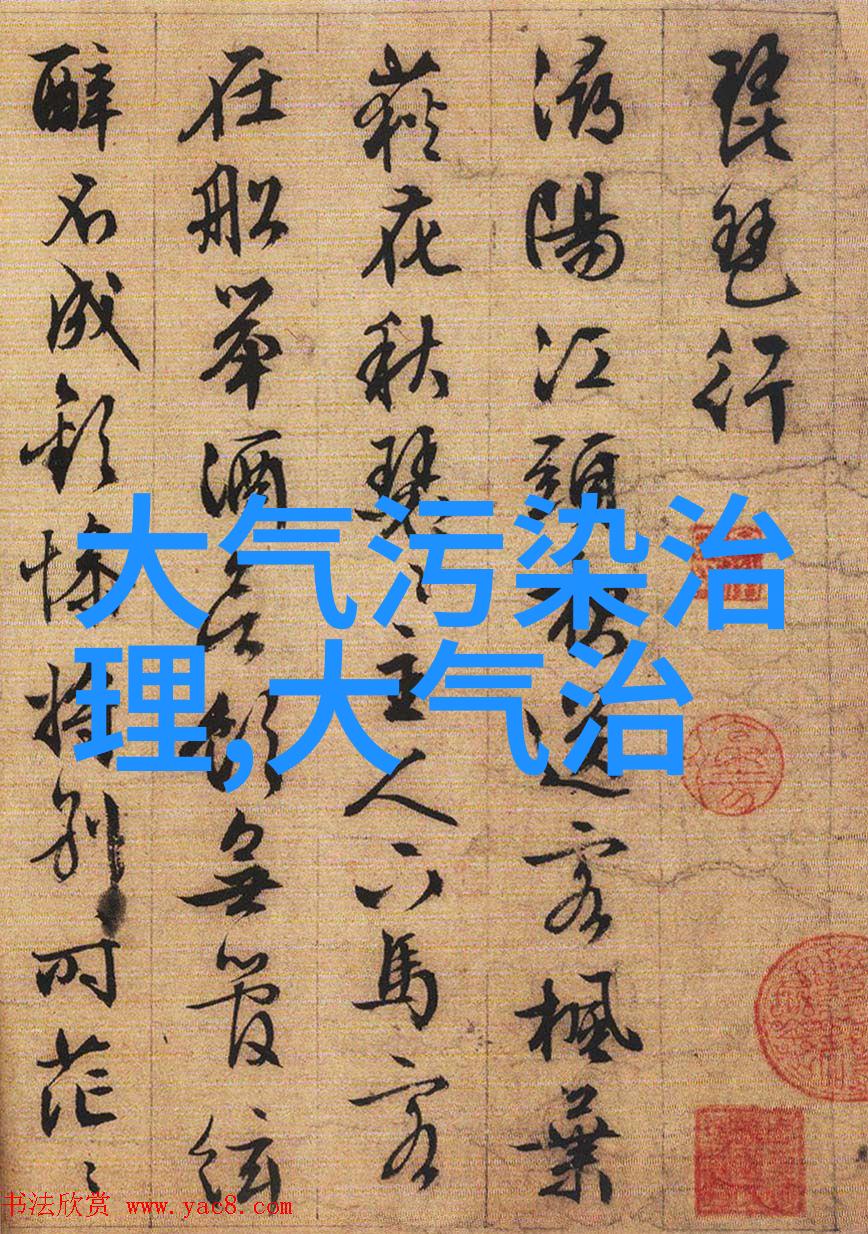 琵琶行
潯陽江頭夜送客楓葉
荻花秋瑟〻主人下馬客
在船舉酒欲飲無管絃
醉不成歡慘將别時茫〻
大气污染治
理,大气治
书法欣赏 www.yac8.com